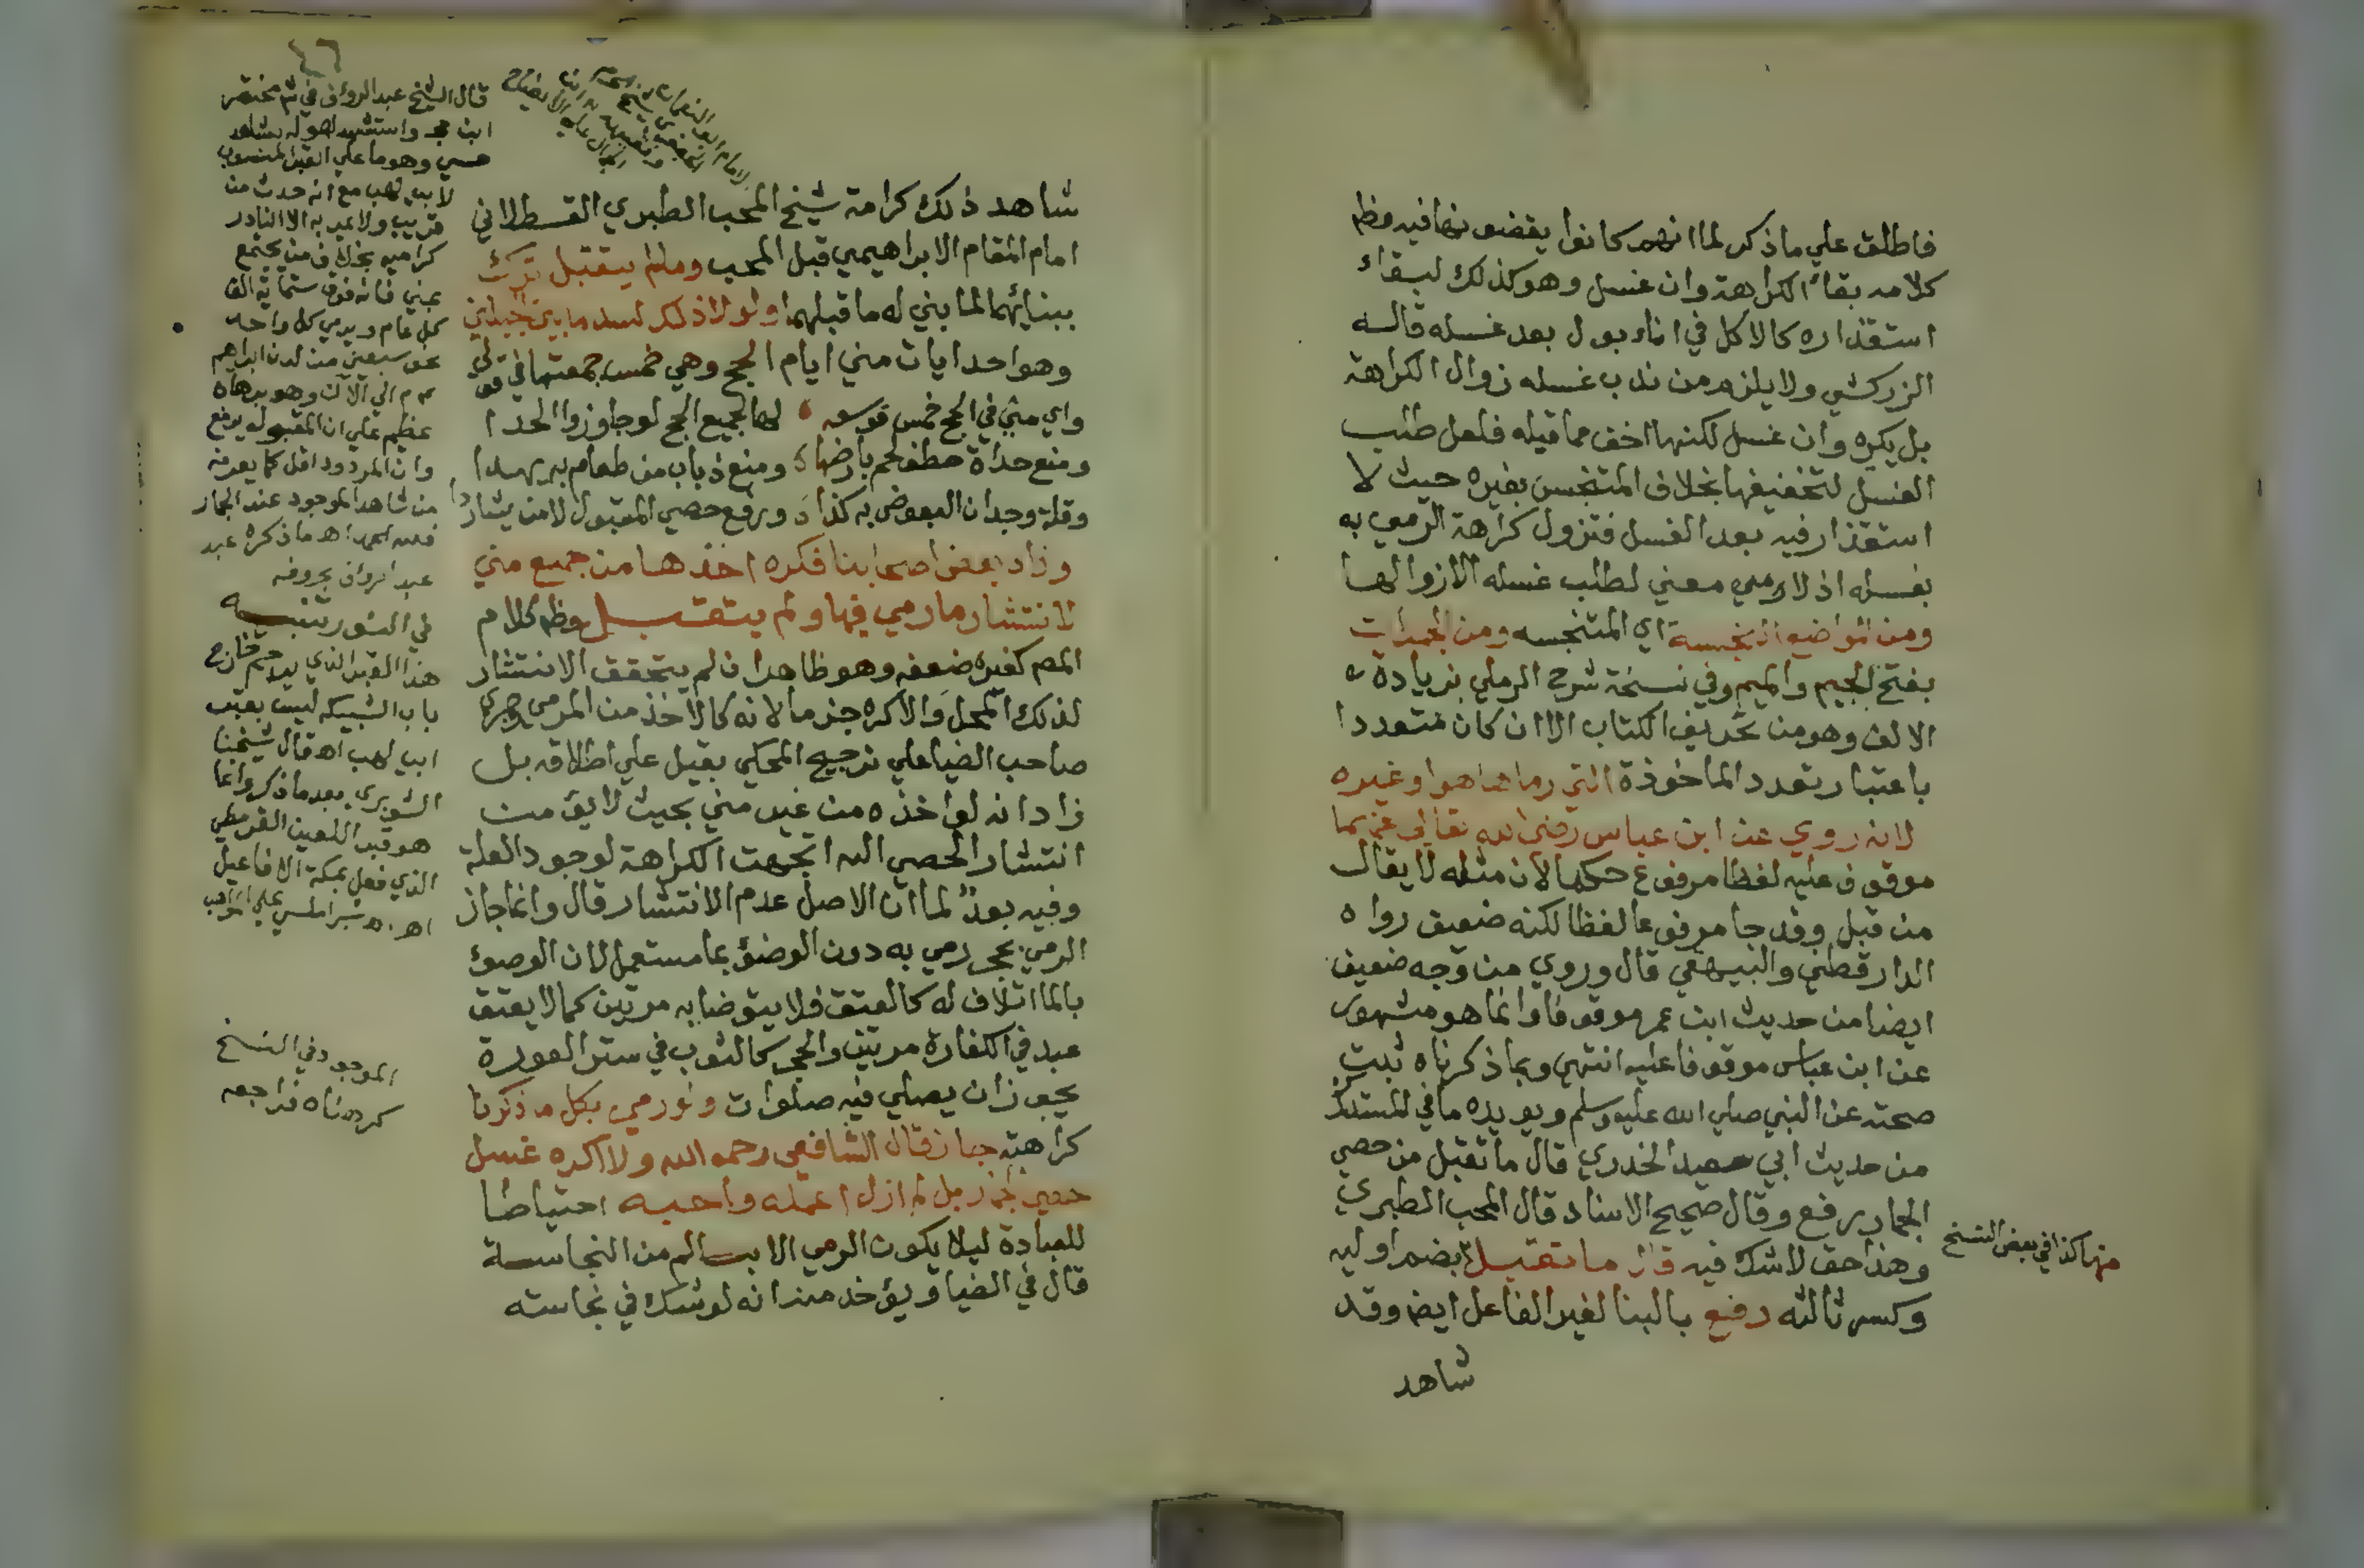 فاطلق علي ماذكر لما انهم كانوا يقضون فيه وظم
كلامه بقاء الكراهة وان غسل وهو كذلك لبقاء
استقذاره كالاكل في اناء بول بعد غسله قاله
الزركشي ولا يلزم من ندب غسله زوال الكراهة
بل يكره وان غسل لكنها اخف مما قبله فلعل طلب
الغسل لتخفيفها بخلاف المتنجس بغيره حيث لا
استقذار فيه بعد الغسل فتزول كراهة الرمي به
بغسله اذ لا معني لطلب غسله الا زوالها
ومن المواضع النجسة اي المتنجسه ومن الجمرات
بفتح الجيم والميم وفي نسخة شرح الرملي بزيادة
الالف وهو من تحريف الكتاب الا ان كان متعددا
باعتبار تعدد الماخوذة التي رماها هو او غيره
لانه روي عن ابن عباس رضي الله تعالي عنهما
موقوف عليه لفظا مرفوع حكما لان مثله لا يقال
من قبل وقد جا مرفوعا لفظا لكنه ضعيف رواه
الدارقطني والبيهقي قال وروي من وجه ضعيف
ايضا من حديث ابن عمر موقوفا وانما هو مشهور
عن ابن عباس موقوفا عليه انتهي وبما ذكرناه ثبت
صحته عن النبي صلي الله عليه وسلم ويويده ما في المستدرك
من حديث ابي سعيد الخدري قال ما تقبل من حصي
الجمار رفع وقال صحيح الاسناد قال المحب الطبري
وهذا حق لاشك فيه قال ما تقبل بضم اوليه
وكسر ثالثه رفع بالبنا لغير الفاعل ايضا وقد
شاهد
منها كذا في بعض النسخ
٤٦
شاهد ذلك كرامة شيخ المحب الطبري القسطلاني
امام المقام الابراهيمي قبل المحب ومالم يتقبل ترك
ببنائهما لما بني له ما قبلهما ولولا ذلك لسد ما بين الجبلين
وهو احد ايات مني ايام الحج وهي خمس جمعتها في قولي
واي مني في الحج خمس فوسعه لها لجميع الحج لو جاوزوا الحدا
ومنع حداة خطف لحم بارضها ومنع ذباب من طعام بريدا
وقلة وجدان البعوض به كذا ورفع حصي المقبول لا من يشاردا
وزاد بعض اصحابنا فكره اخذها من جميع مني
لانتشار ما رمي فيها ولم يتقبل وظم كلام
المص كغيره ضعفه وهو ظاهر ان لم يتحقق الانتشار
لذلك المحل والا كره جزما لانه كالاخذ من المرمي وجري
صاحب الضيا علي ترجيح المحكي بقيل علي اطلاقه بل
زاد انه لو اخذه من غير مني بحيث لا يؤمن
انتشار الحصي اليه اتجهت الكراهة لوجود العلة
وفيه بعد لما ان الاصل عدم الانتشار قال وانما جاز
الرمي بحجر رمي به دون الوضؤ بما مستعمل لان الوضوء
بالما اتلاف له كالعتق فلا يتوضا به مرتين كما لا يعتق
عبد في الكفارة مرتين والحجر كالثوب في ستر العورة
يجوز ان يصلي فيه صلوات ولو رمي بكل ما ذكرنا
كراهته جاز قال الشافعي رحمه الله ولا اكره غسل
حصي الجمار بل لم ازل اعمله واحبه احتياطا
للعبادة ليلا يكون الرمي الا بسالم من النجاسة
قال في الضيا ويؤخذ منه انه لو شك في نجاسته
قال الشيخ عبد الرؤف في شم مختصر
ابن حجر واستشهد لقوله بشاهد
حسي وهو ما علي القبر المنسوب
لابي لهب مع انه حدث من
قريب ولا يمر به الا النادر
بخلاف من يجتمع
بمني فانه فوق ستماية الف
كل عام ويرمي كل واحد
نحو سبعين من لدن ابراهيم
الي الآن وهو برهان
عظيم علي ان المقبول يرفع
وان المردود اقل كما يعرفه
من شاهد الموجود عند الجمار
فلله الحمد اه ما ذكره عبد
عبد الرؤف بحروفه
في الشوبري تنبيه
هذا القبر الذي يرجم خارج
باب الشبيكه ليس بقبر
ابي لهب اه قال شيخنا
الشوبري بعد ما ذكر وانما
هو قبر اللعين القرمطي
الذي فعل بمكة الافاعيل
اه شبراملسي علي المواهب
الموجود في النسخ
كرهناه فراجعه